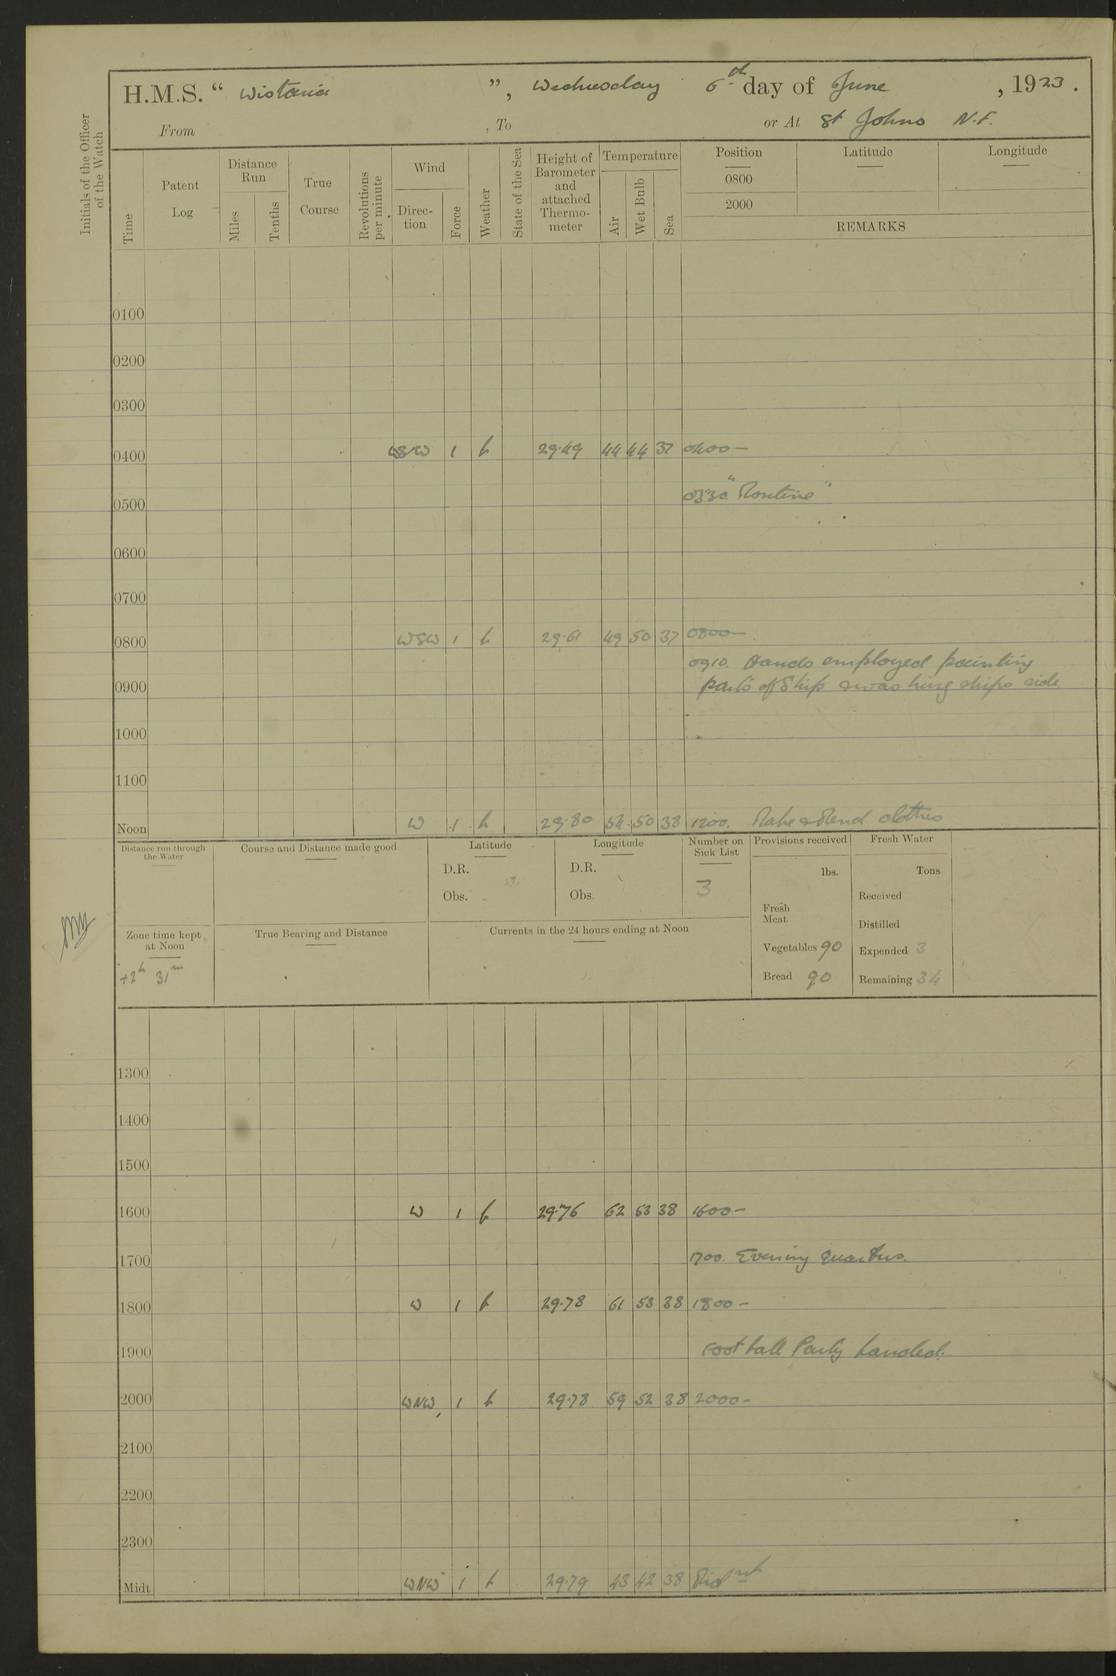 H.M.S. “ Wistaria ”, Wednesday 6th day of June , 1923 .
From , To or At St Johns N.F.
Initials of the Officer
of the Watch
Time
Patent
Log
Distance
Run
Miles
Tenths
True
Course
Revolutions
per minute
Wind
Direc-
tion
Force
Weather
State of the Sea
Height of
Barometer
and
attached
Thermo-
meter
Temperature
Air
Wet Bulb
Sea
Position
0800
2000
Latitude
Longitude
REMARKS
0100
0200
0300
0400 WSW 1 b 29.49 44 44 37 0400 —
0500 0530 "Routine"
0600
0700
0800 WSW 1 b 29.61 49 50 37 0800 —
0910. Hands employed painting
0900 parts of Ship & washing ships side
1000
1100
Noon W 1 b 29.80 54 50 38 1200. Make & Mend clothes
Distance run through
the Water
Course and Distance made good
Latitude
D.R.
Obs.
Longitude
D.R.
Obs.
Number on
Sick List
3
Provisions received
lbs.
Fresh
Meat
Vegetables 90
Bread 90
Fresh Water
Tons
Received
Distilled
Expended 3
Remaining 34
Zone time kept
at Noon
+2h 31m
True Bearing and Distance
Currents in the 24 hours ending at Noon
1300
1400
1500
1600 W 1 b 29.76 62 53 38 1600 —
1700 1700. Evening Quarters.
1800 W 1 b 29.78 61 53 38 1800 —
1900 Football Party Landed.
2000 WNW 1 b 29.78 59 52 38 2000 —
2100
2200
2300
Midt WNW 1 b 29.79 43 42 38